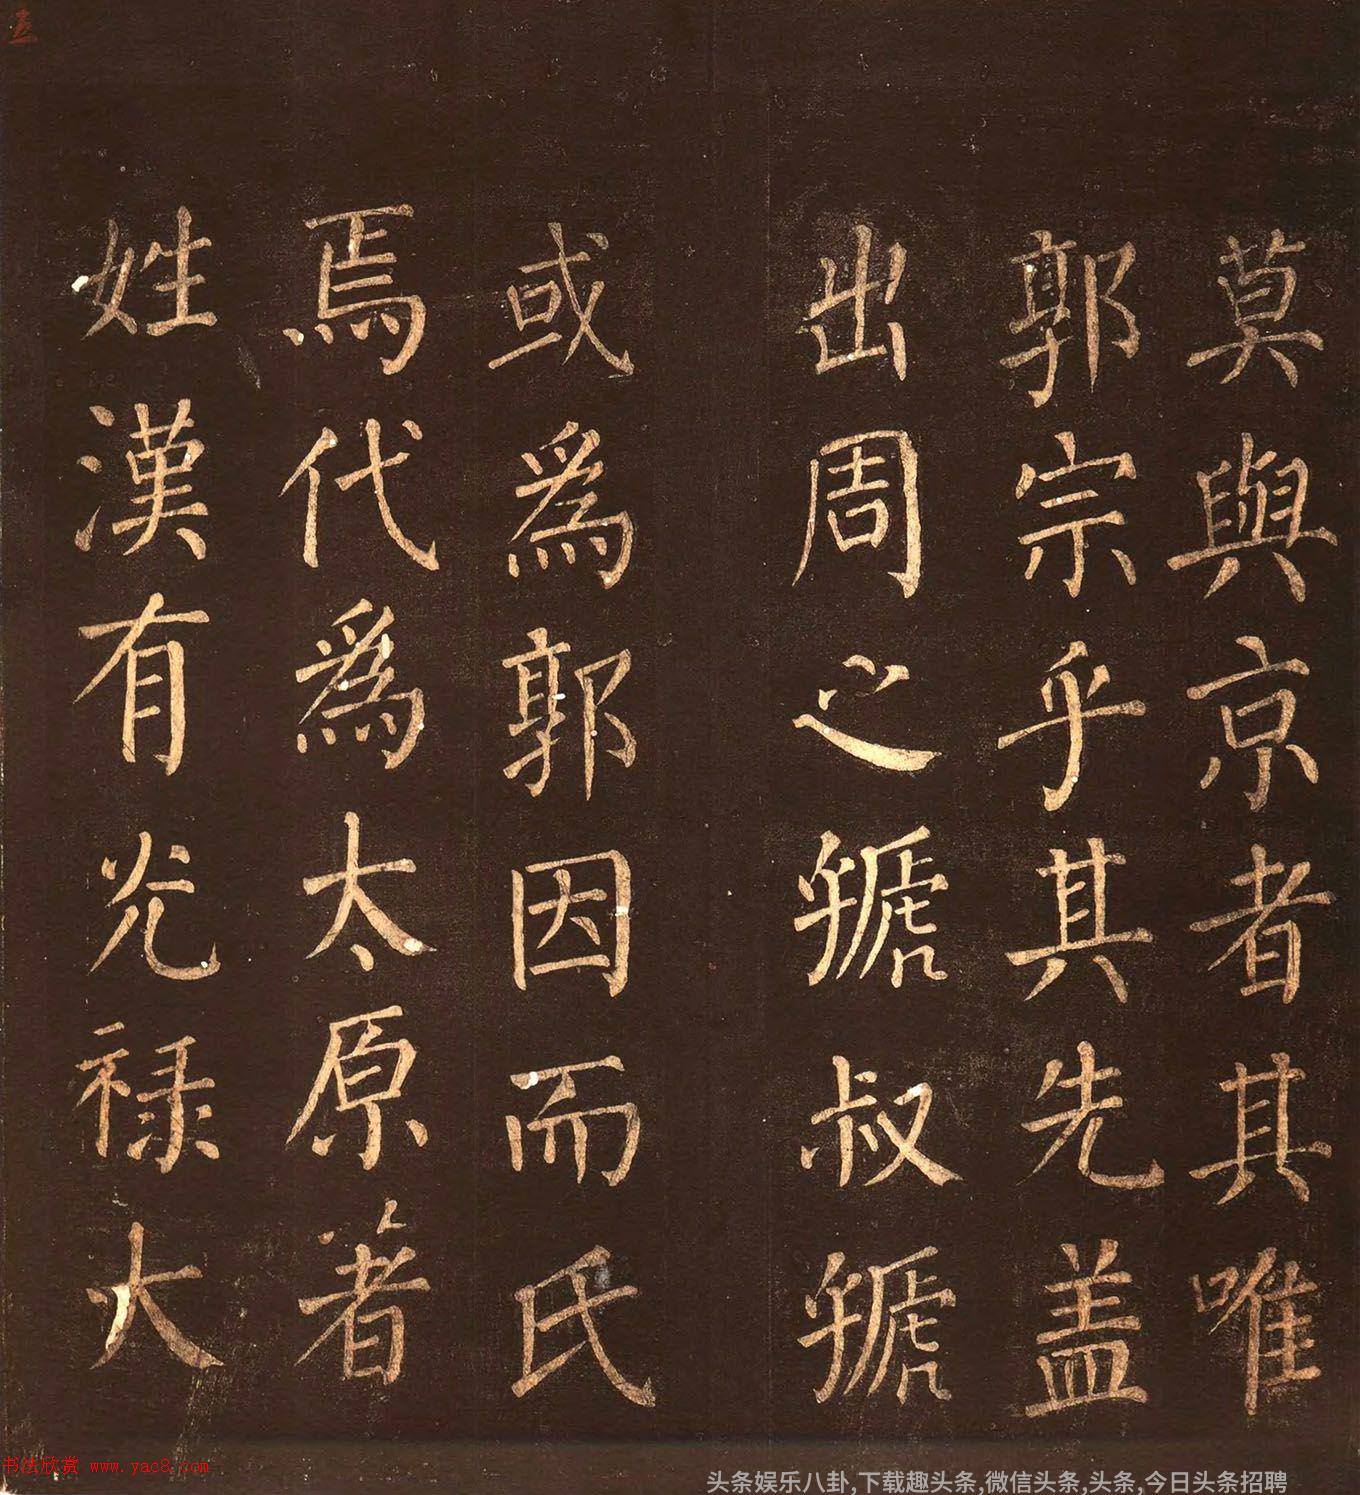 莫與京者其唯
郭宗乎其先盖
出周之虢叔虢
或為郭因而氏
焉代為太原著
姓漢有光禄大
书法欣赏 www.yac8.com
头条娱乐八卦,下载趣头条,微信头条,头条,今日头条招聘